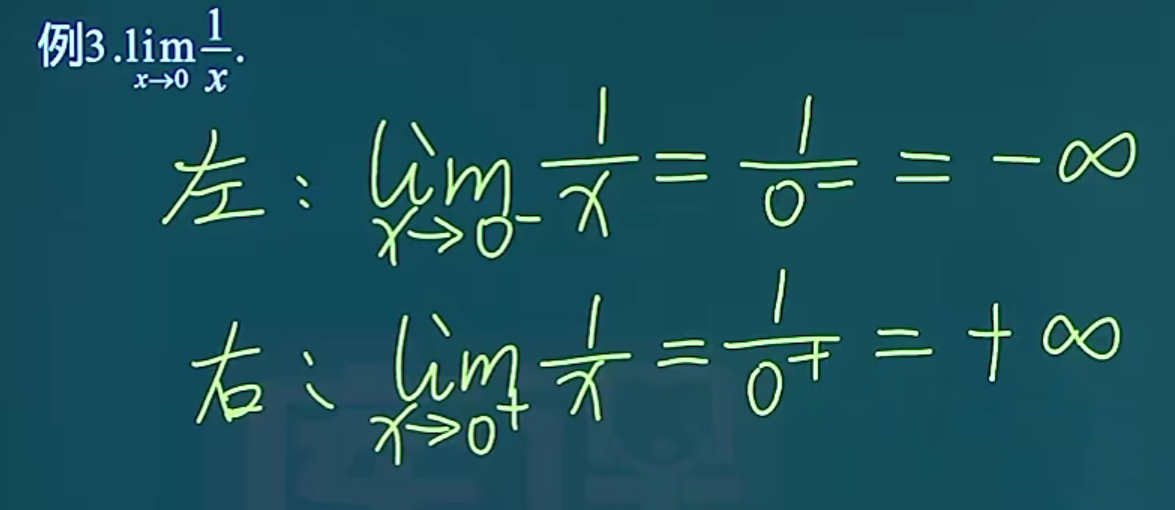 例3.lim_{x→0} 1/x.
左: lim_{x→0⁻} 1/x = 1/0⁻ = -∞
右: lim_{x→0⁺} 1/x = 1/0⁺ = +∞